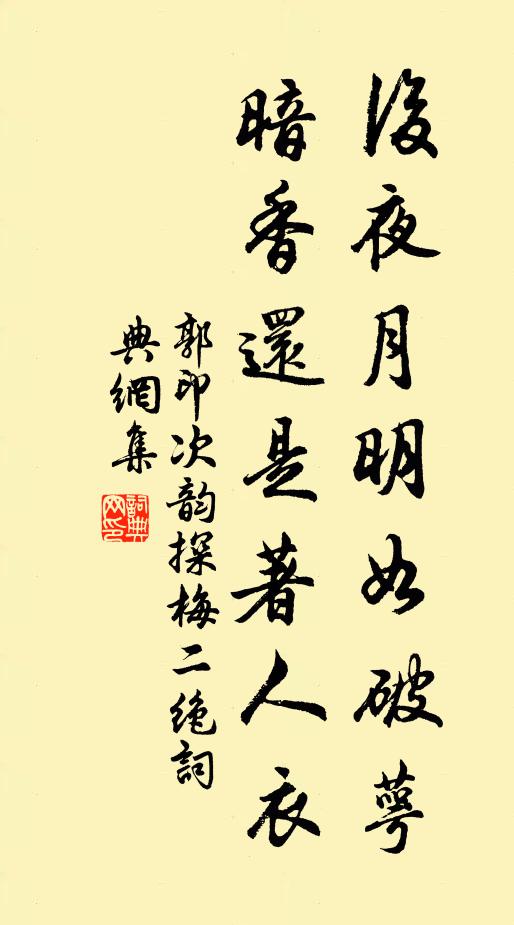 後夜月明如破萼
暗香還是著人衣
郭印次韵探梅二絶詞
典網集
詞典網印